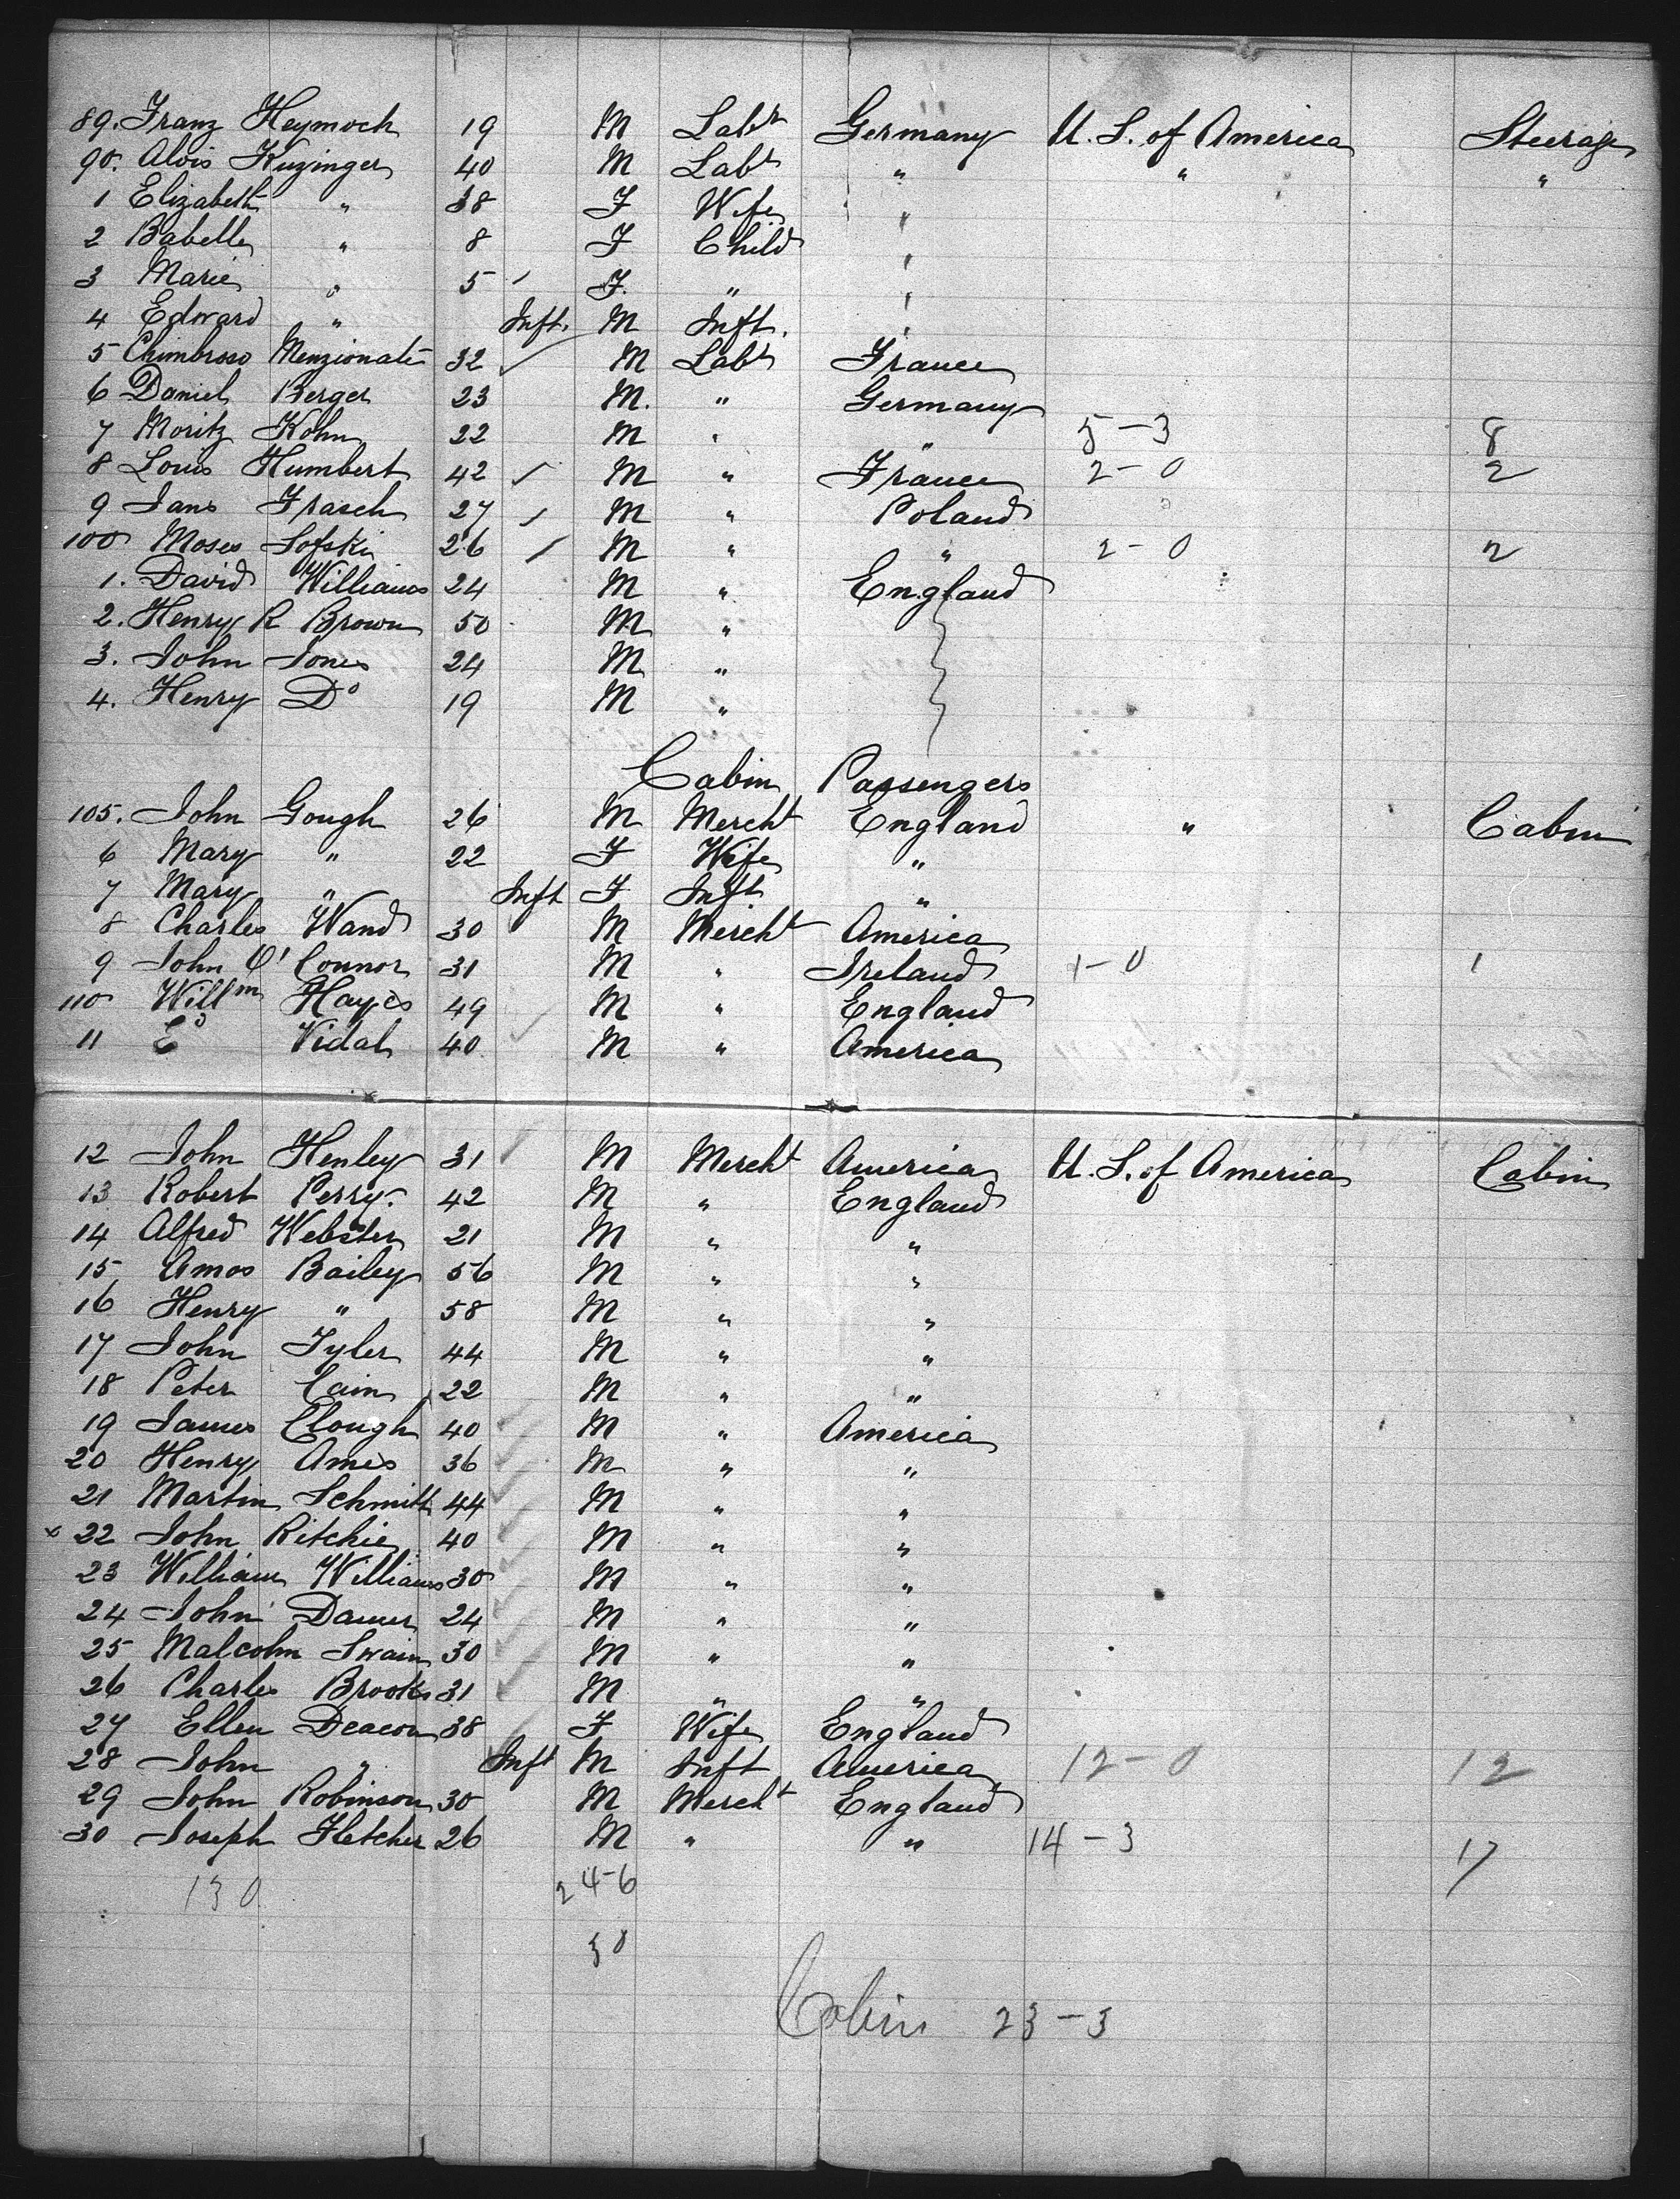 89. Franz Heymoch 19 M Labr Germany U. S. of America Steerage
90. Alois Kuzinger 40 M Labr " " "
1 Elizabeth " 38 F Wife "
2 Babelle " 8 F Child "
3 Marie " 5 F. " "
4 Edward " Inft. M Inft. "
5 Chimbroso Menzionate 32 M Labr France
6 Daniel Berger 23 M. " Germany
7 Moritz Kohn 22 M " " 5-3 8
8 Louis Humbert 42 M " France 2-0 2
9 Jans Frasch 27 M " Poland
100 Moses Sofski 26 M " " 2-0 2
1. David Williams 24 M " England
2. Henry R Brown 50 M "
3. John Jones 24 M "
4. Henry Do 19 M "
Cabin Passengers
105. John Gough 26 M Mercht England " Cabin
6 Mary " 22 F Wife "
7 Mary " Inft F Inft "
8 Charles Wand 30 M Mercht America
9 John O'Connor 31 M " Ireland 1-0 1
110 Willm Hayes 49 M " England
11 Eo Vidal 40 M " America
12 John Henley 31 M Mercht America U. S. of America Cabin
13 Robert Perry. 42 M " England
14 Alfred Webster 21 M " "
15 Amos Bailey 56 M " "
16 Henry " 58 M " "
17 John Tyler 44 M " "
18 Peter Cain 22 M " "
19 James Clough 40 M " America
20 Henry Ames 36 M " "
21 Martin Schmitt 44 M " "
x 22 John Ritchie 40 M " "
23 William Williams 30 M " "
24 John 24 M " "
25 Malcolm Swain 30 M " "
26 Charles Brooks 31 M " "
27 Ellen Deacon 38 F Wife England
28 John " Inft M Inft America 12-0 12
29 John Robinson 30 M Mercht England
30 Joseph Fletcher 26 M " " 14-3 17
130 24-6
30
Cabin 23-3